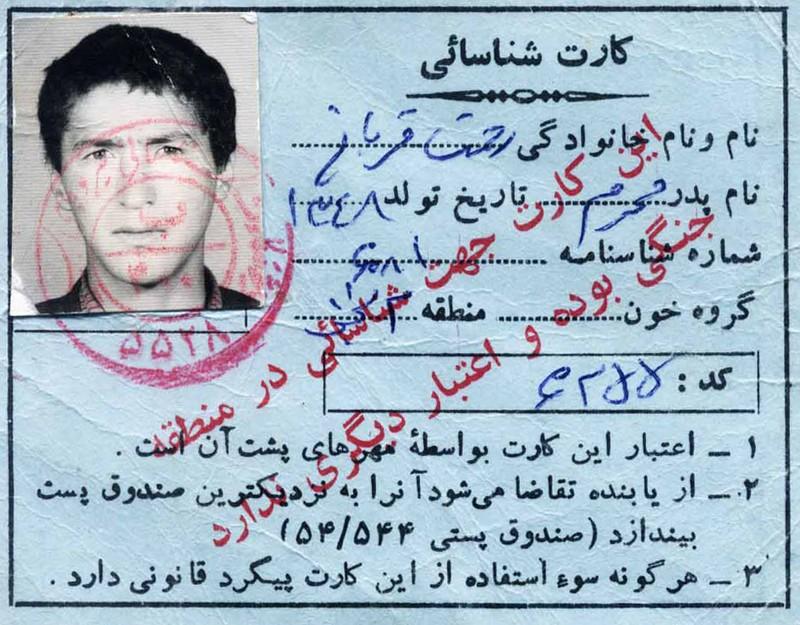 کارت شناسائی
نام و نام خانوادگی رحمت قربانی
نام پدر محرم تاریخ تولد ۱۳۴۸
شماره شناسنامه
گروه خون منطقه
کد :
۱ ـ اعتبار این کارت بواسطهٔ مهرهای پشت آن است .
۲ ـ از یابنده تقاضا می‌شود آنرا به نزدیکترین صندوق پست
بیندازد (صندوق پستی ۵۴/۵۴۴)
۳ ـ هرگونه سوء استفاده از این کارت پیگرد قانونی دارد .
این کارت جهت شناسائی در منطقه
جنگی بوده و اعتبار دیگری ندارد
۵۵۲۸